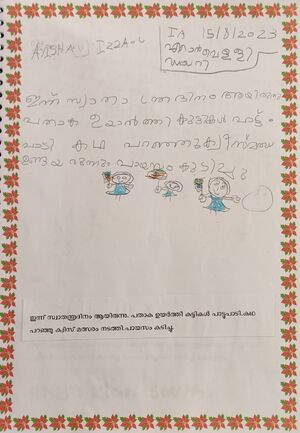 IZZA
1A 15/8/2023
ഇന്ന് സ്വാതന്ത്രദിനം ആയിരുന്നു
പതാക ഉയർത്തി കുട്ടികൾ പാട്ടും
പാടി കഥ പറഞ്ഞു ക്വിസ്
പായസം കുടിച്ചു
ഇന്ന് സ്വാതന്ത്രദിനം ആയിരുന്നു. പതാക ഉയർത്തി കുട്ടികൾ പാട്ടുപാടി.കഥ
പറഞ്ഞു ക്വിസ് മത്സരം നടത്തി.പായസം കുടിച്ചു.